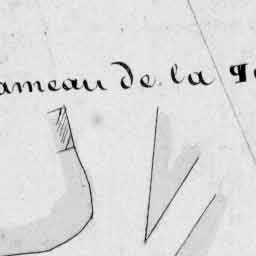 ameau de la